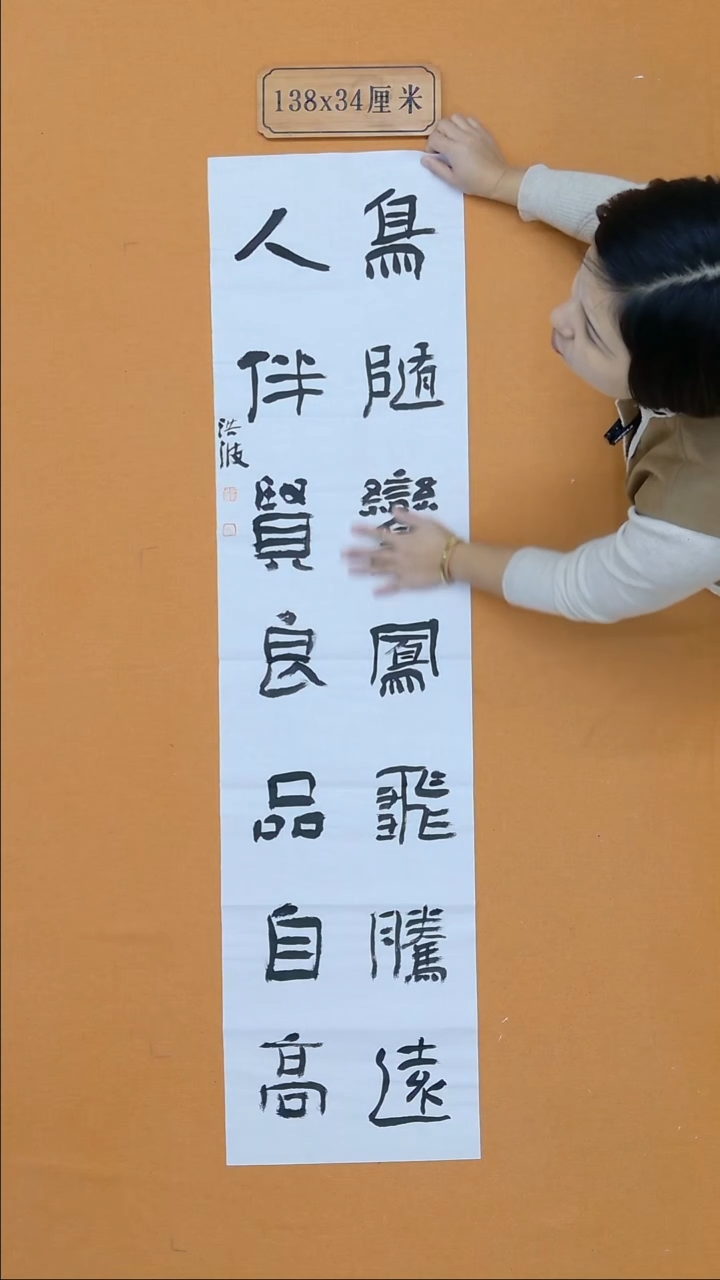 138x34厘米
鳥隨鸞鳳飛騰遠
人伴賢良品自高
洪波